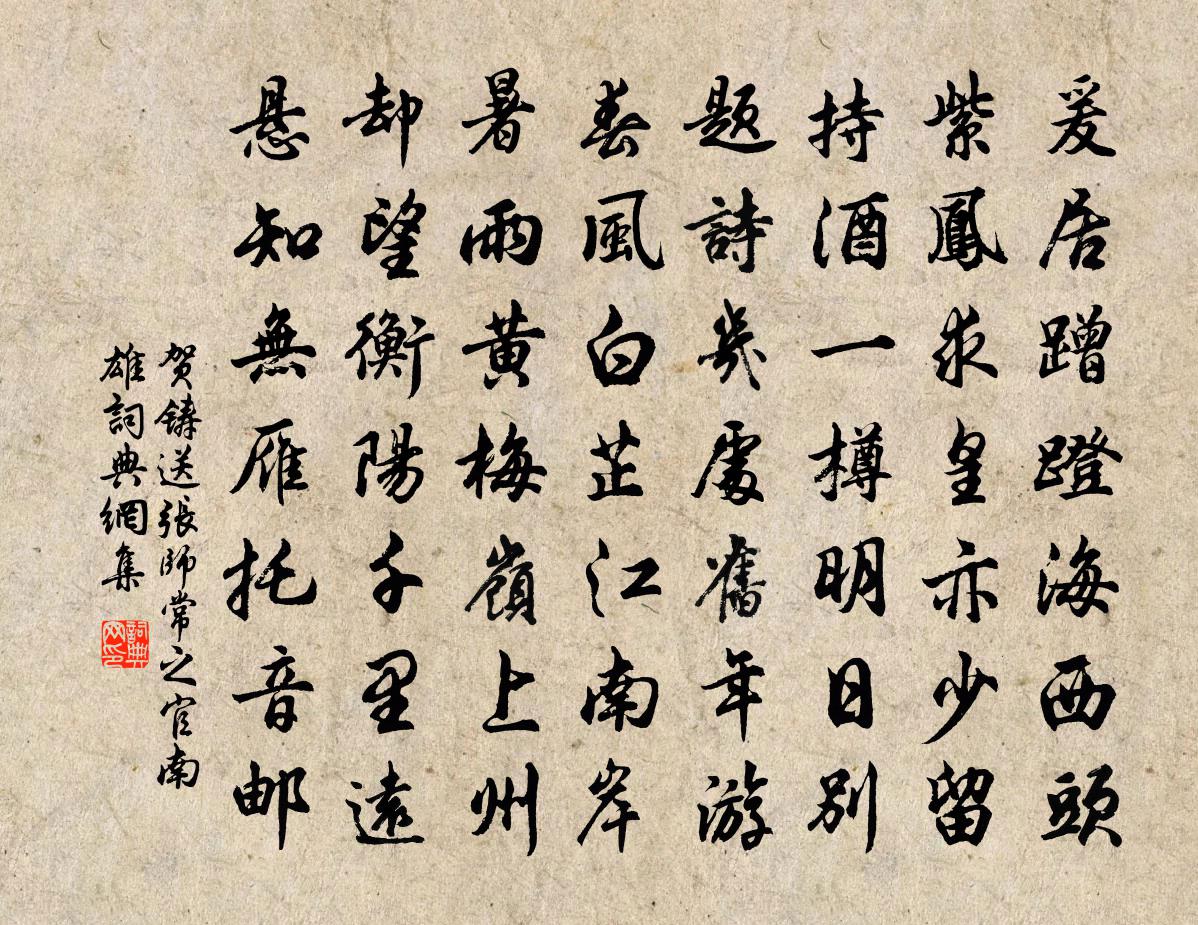 爰居蹭蹬海西頭
紫鳳求皇亦少留
持酒一樽明日別
題詩幾處舊年游
春風白芷江南岸
暑雨黄梅嶺上州
却望衡陽千里遠
悬知無雁托音邮
贺鑄送張師常之官南
雄詞典網集
詞典
网印